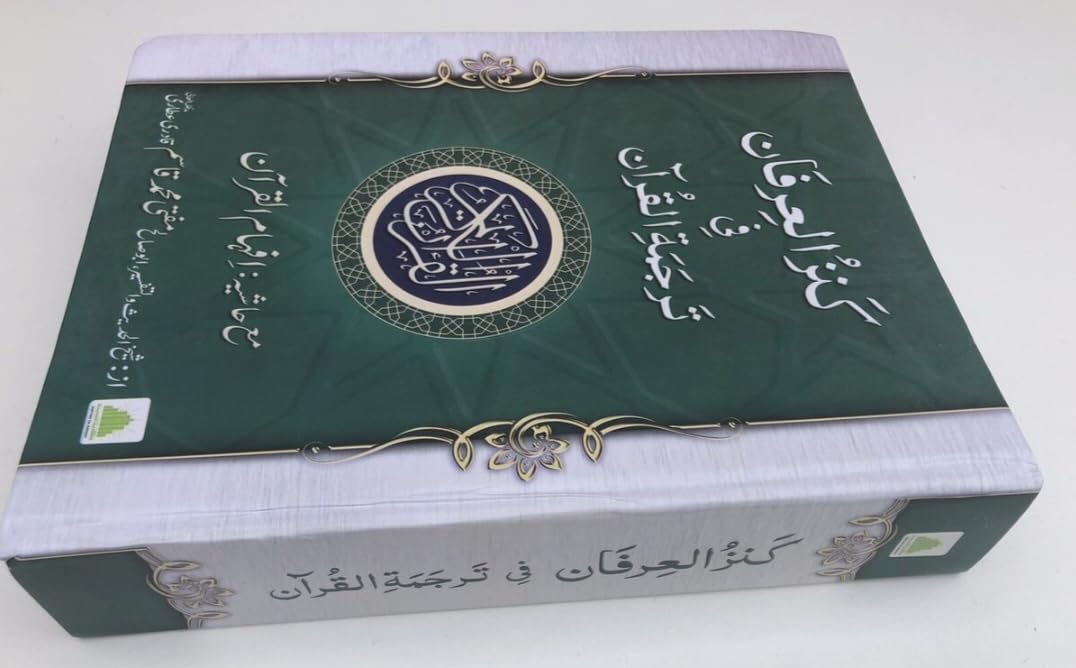 كَنزُ العِرفَان
فِي
تَرجَمَةِ القُرآن
القرآن الكريم
مع حاشیہ: افہام القرآن
از: شیخ الحدیث والتفسیر ابو صالح مفتی محمد قاسم قادری عطاری
كَنزُ العِرفَان فِي تَرجَمَةِ القُرآن